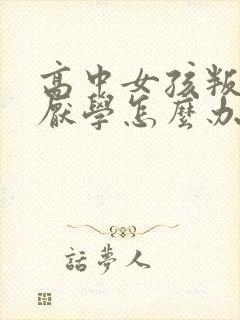 高中女孩叛
厭學怎麼办
話夢人